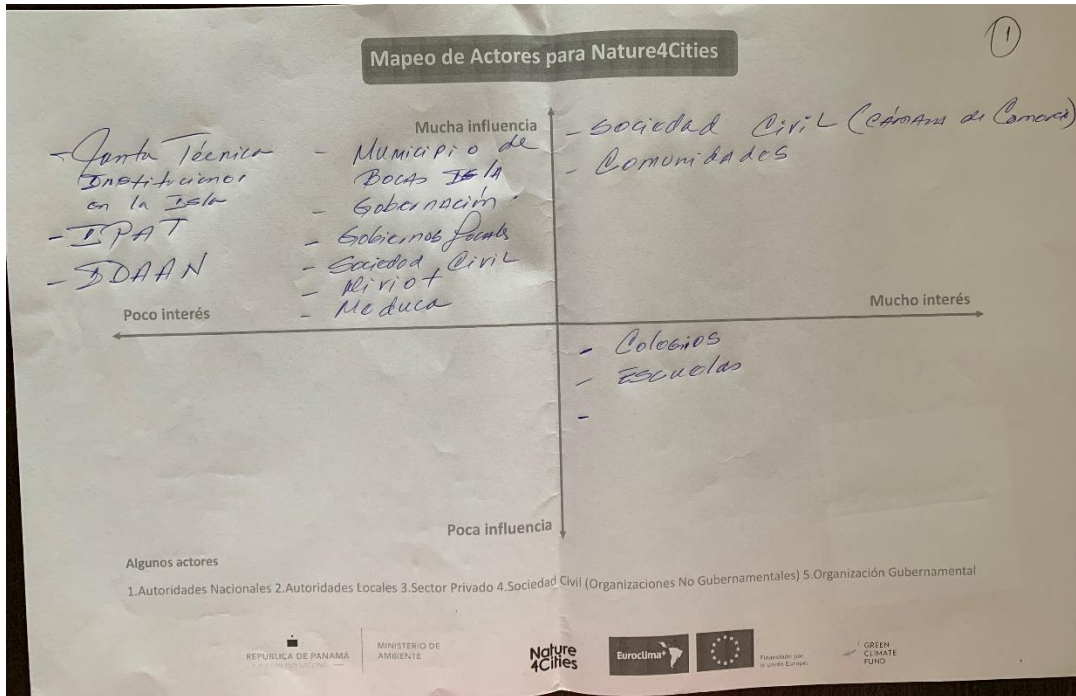 1
Mapeo de Actores para Nature4Cities
Mucha influencia
- Junta Técnica
Instituciones
en la Isla
- IPAT
- IDAAN
- Municipio de
Bocas Isla
- Gobernación
- Gobiernos Locales
- Sociedad Civil
- Miviot
- Meduca
- Sociedad Civil (Cámara de Comercio)
- Comunidades
Poco interés
Mucho interés
- Colegios
- Escuelas
-
Poca influencia
Algunos actores
1.Autoridades Nacionales 2.Autoridades Locales 3.Sector Privado 4.Sociedad Civil (Organizaciones No Gubernamentales) 5.Organización Gubernamental
REPÚBLICA DE PANAMÁ
MINISTERIO DE
AMBIENTE
Nature
4Cities
Euroclima+
Financiado por
la Unión Europea
GREEN
CLIMATE
FUND